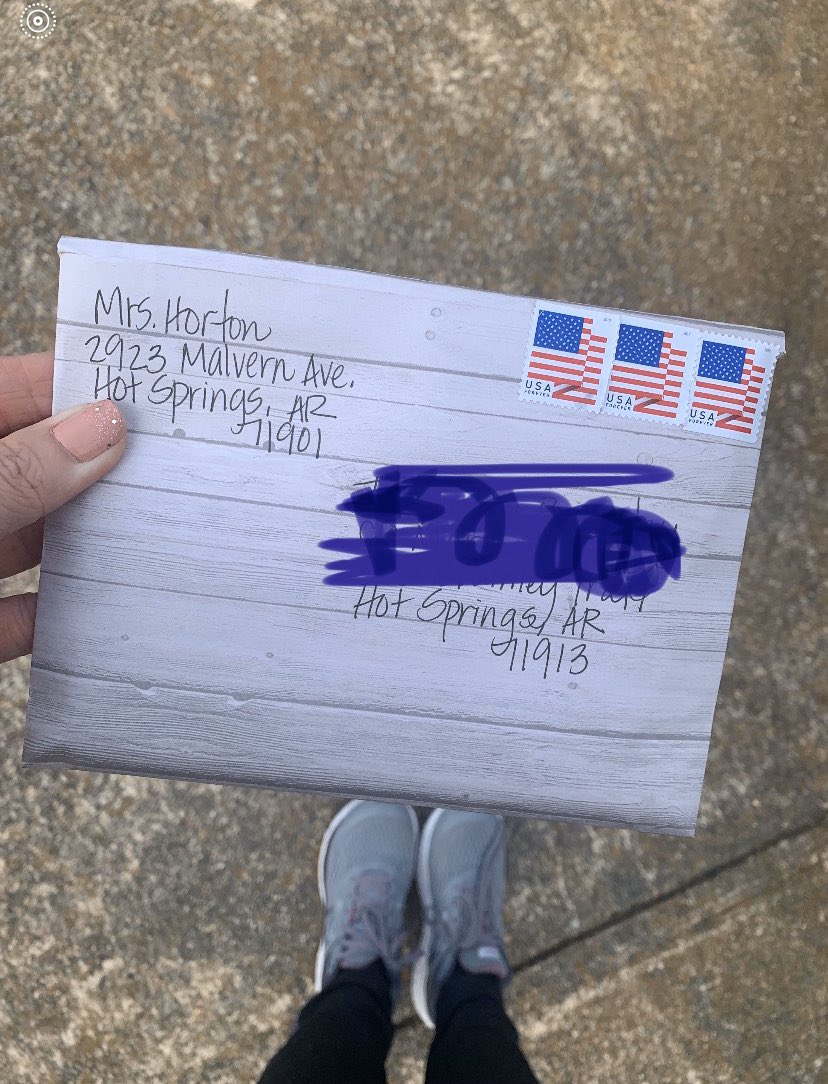 Mrs. Horton
2923 Malvern Ave.
Hot Springs, AR
71901
USA
FOREVER
USA
FOREVER
USA
FOREVER
Hot Springs, AR
71913